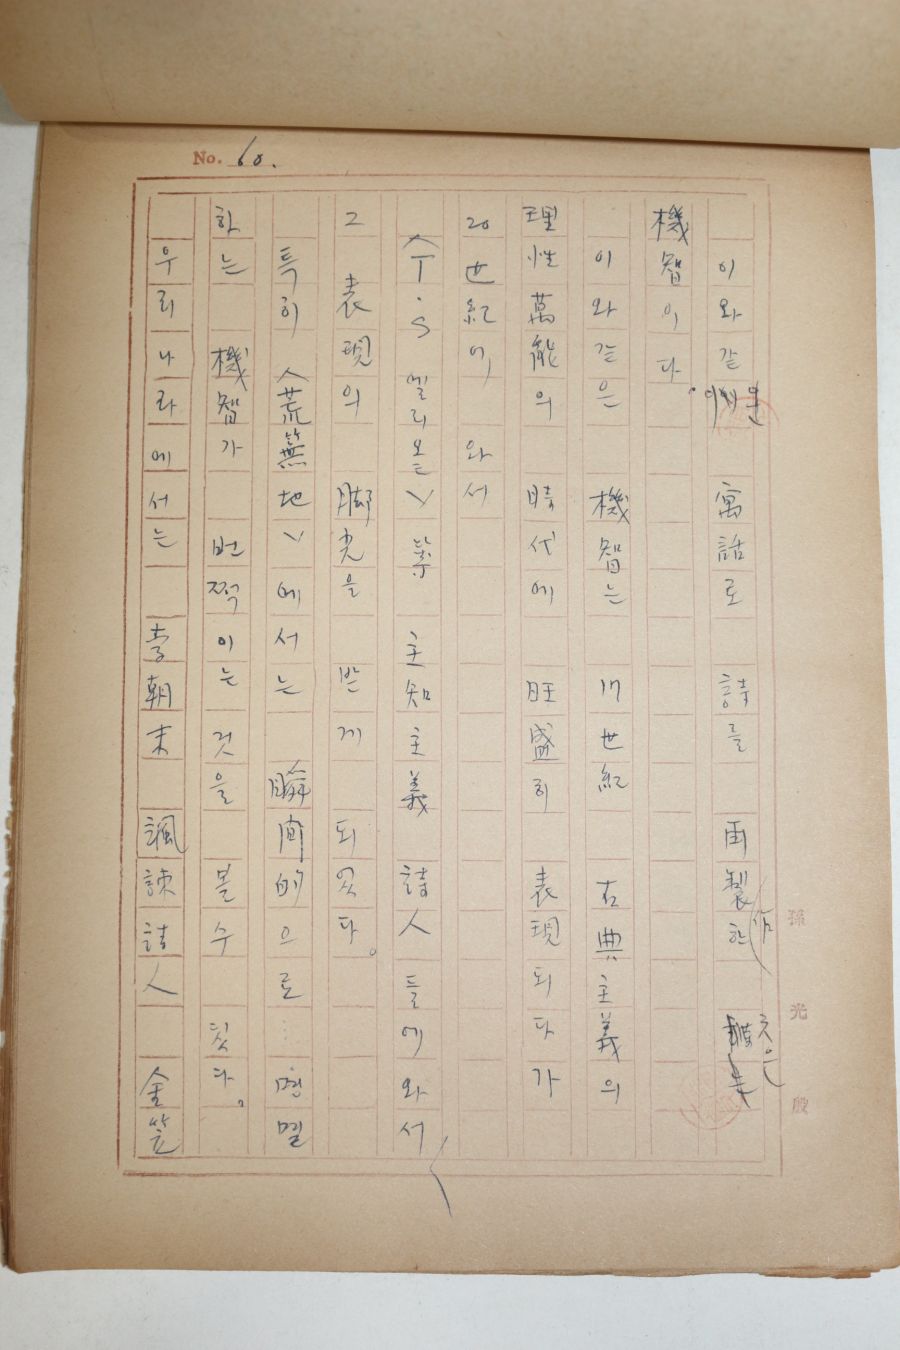 No. 60.
이와 같 寓話로 詩를 再製한 作 것은
機智이다.
이와 같은 機智는 17世紀 古典主義의
理性萬能의 時代에 旺盛히 表現되다가
20世紀에 와서
〈T·S 엘리오트〉 等 主知主義 詩人들에 와서
그 表現의 脚光을 받게 되었다.
특히 〈荒蕪地〉에서는 瞬間的으로…
하는 機智가 번쩍이는 것을 볼 수 있다.
우리나라에서는 李朝末 諷諫詩人 金笠
孫光殷